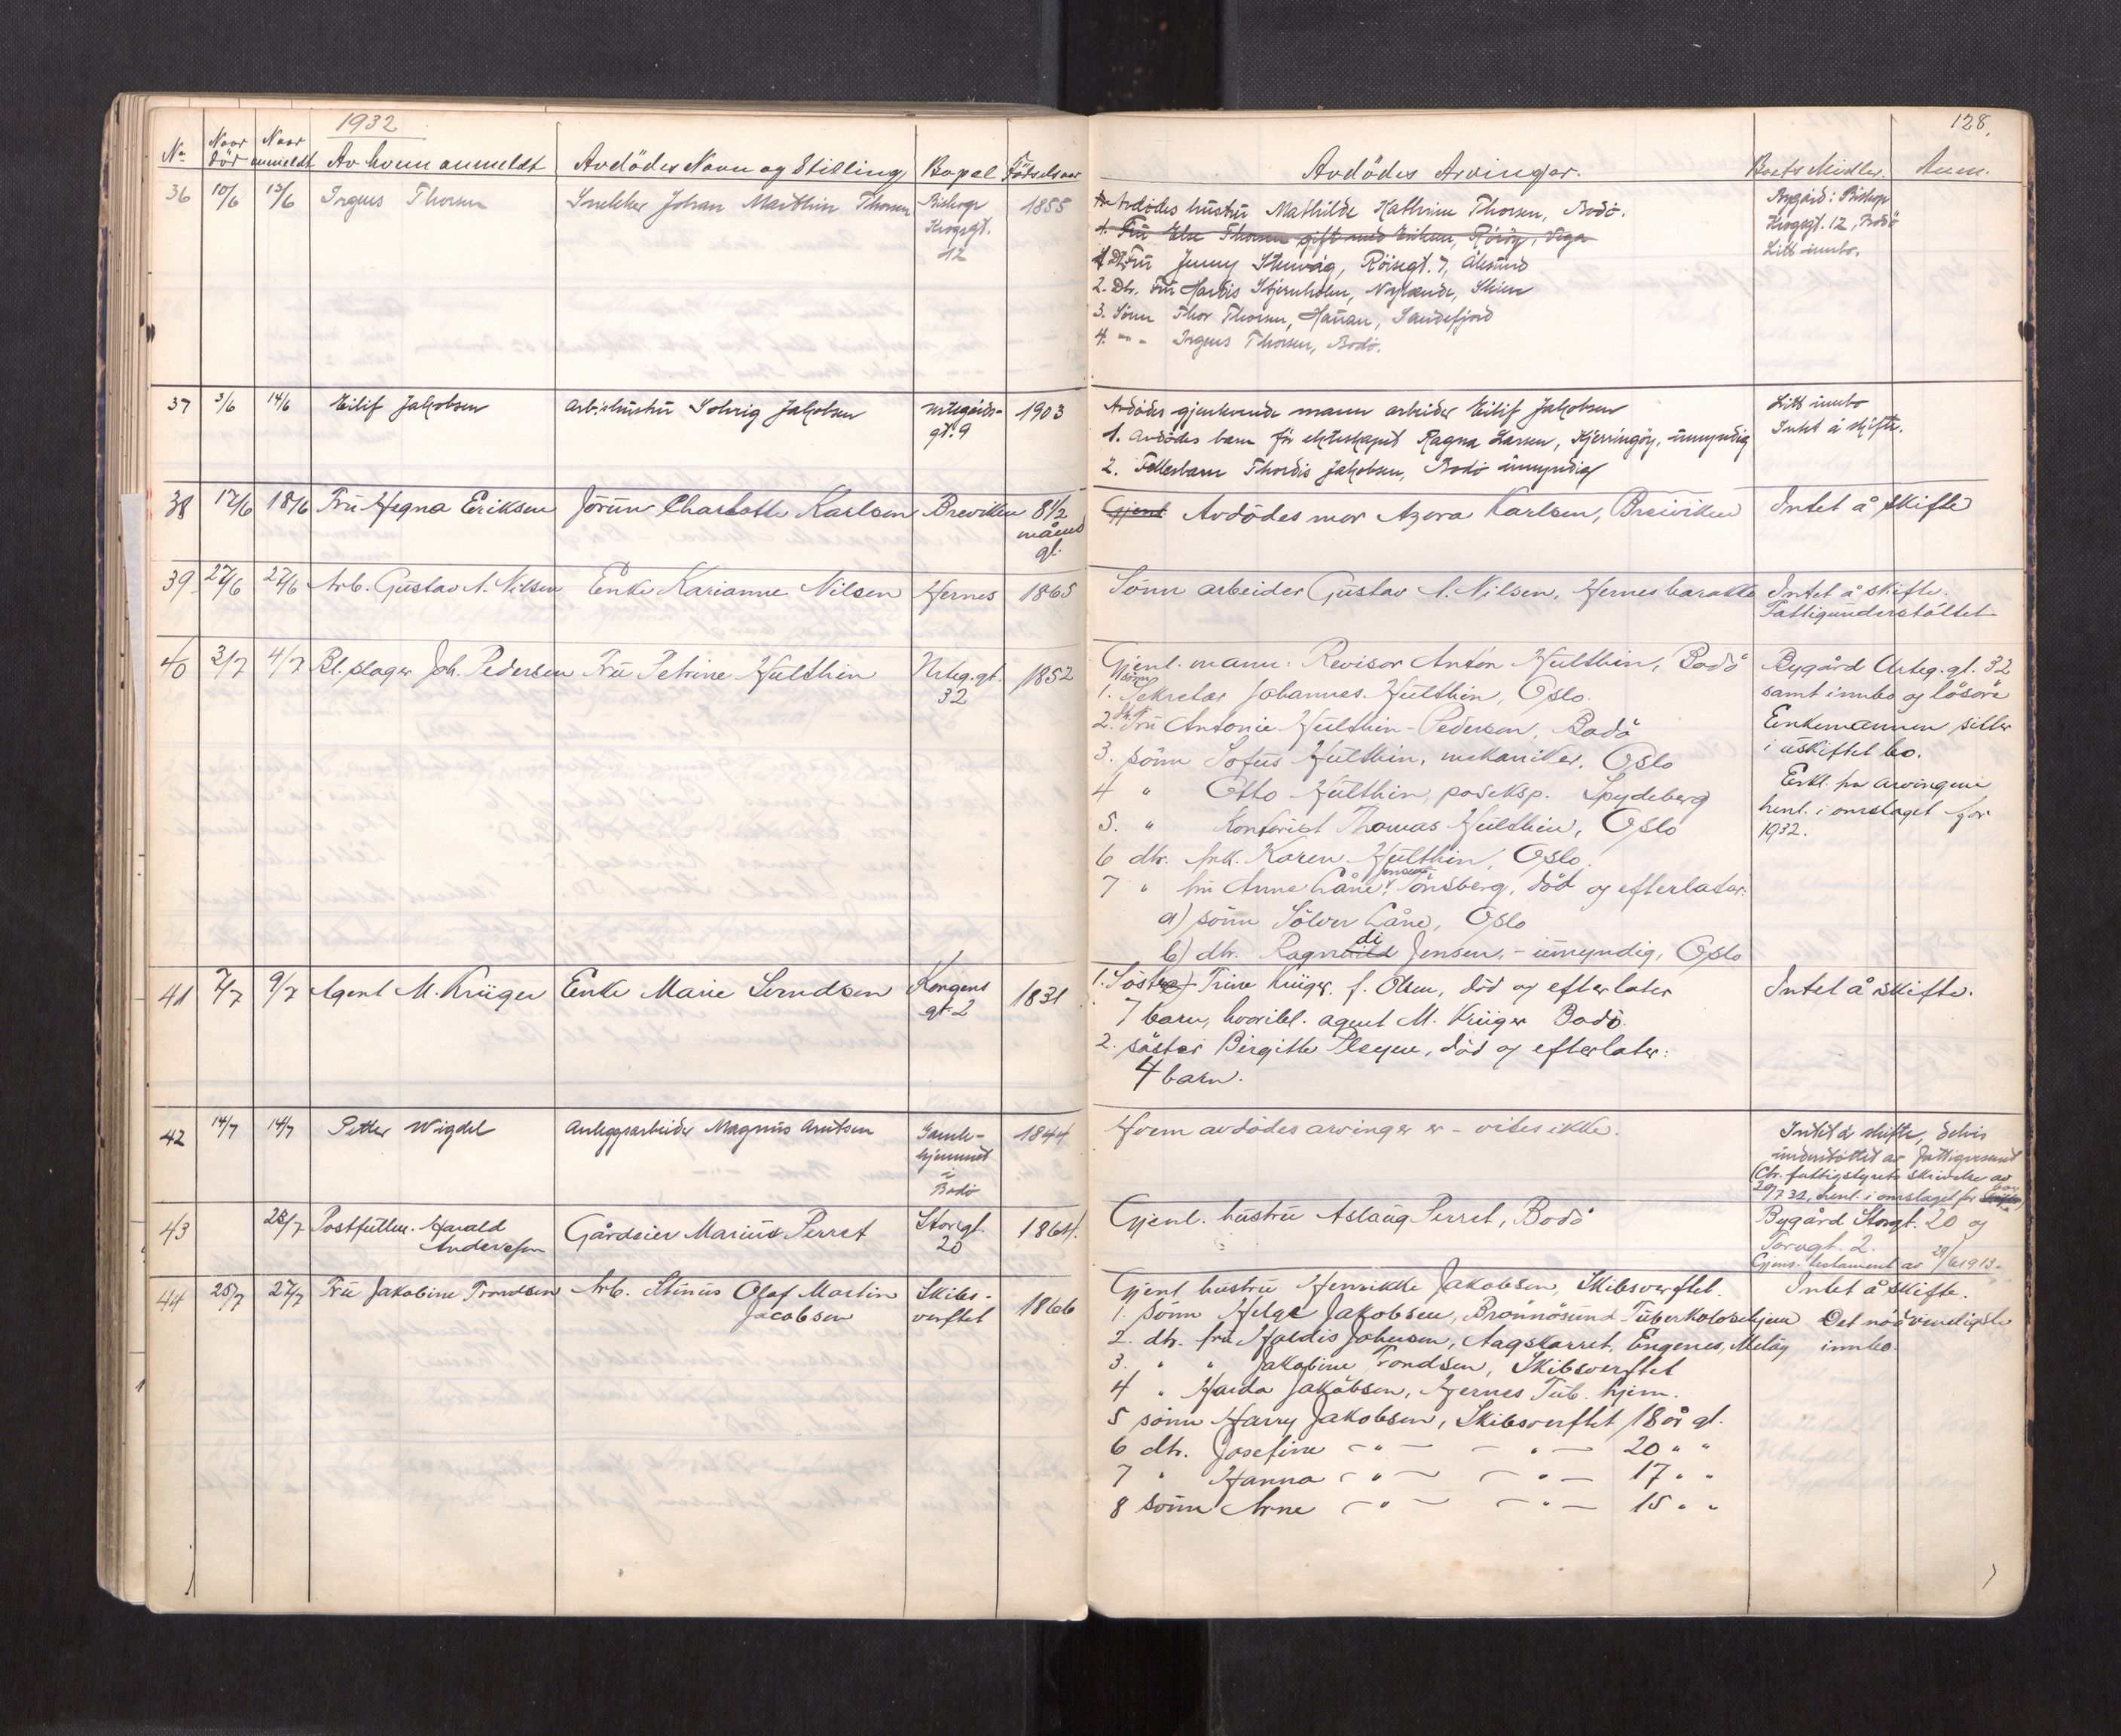 1932
128.
No
Naar död
Naar anmeldt
Av hvem anmeldt
Avdödes Navn og Stilling
Bopel
Födselsaar
Avdödes Arvinger.
Boets Midler.
Anm.
36 10/6 13/6 Ingeus Thorsen
Snekker Johan Marthin Thorsen
Bishop
Krogsgt.
12
1855
Avdödes hustru Mathilde Kathrine Thorsen, Bodö.
1. Fru Else Thorsen gift med Eriksen, Röröy, Vega
1 Dtr. Fru Jenny Stenvåg, Röisegt. 7, Ålesund
2. Dtr. Fru Hardis Stjernholm, Nylende, Skien
3. Sönn Thor Thorsen, Haúan, Sandefjord
4. -"- Ingeus Thorsen, Bodö.
Bygård: Biskop
Krogsgt. 12, Bodö
Litt innbo.
37 3/6 14/6 Eilif Jakobsen
Arb.shustru Solveig Jakobsen
Nrtegårds-
gt. 9
1903
Avdödes gjenlevende mann arbeider Eilif Jakobsen
1. Avdödes barn för ekteskapet Ragna Larsen, Kjerringöy, úmyndig
2. Fellesbarn Thordis Jakobsen, Bodö úmyndig
Litt innbo
Intet å skifte.
38 17/6 18/6 Fru Hegna Eriksen
Jörún Charlotte Karlsen
Breviken
8 1/2
måned
gl.
Gjenl Avdödes mor Azora Karlsen, Breiviken
Intet å skifte
39 27/6 27/6 Arb. Gustav A. Nilsen
Enke Karianne Nilsen
Hernes
1865
Sönn arbeider Gústav A. Nilsen, Hernes barakke
Intet å skifte.
Fattigunderstöttet
40 3/7 4/7 Bl.slager Joh. Pedersen
Fru Petrine Hulthin
Nrteg.gt.
32
1852
Gjenl. mann: Revisor Anton Hulthin, Bodö
1. sönn Sekretær Johannes Hulthin, Oslo.
2. dtr. Fru Antonie Hulthin-Pedersen, Bodö
3. sönn Sofus Hulthin, mekaniker, Oslo
4 " Otto Hulthin, posteksp. Spydeberg
5. " Kontorist Thomas Hulthin, Oslo
6 dtr. frk. Karen Hulthin, Oslo.
7 " fru Anne Låne Jensen, Tönsberg, död og efterlater:
a) sönn Sölver Låne, Oslo
b) dtr. Ragndi Jensen, - umyndig, Oslo
Bygård Nrteg.gt. 32
samt innbo og lösöre
Enkemannen sitter
i uskiftet bo.
Erkl. fra arvingene
henl. i omslaget for
1932.
41 7/7 9/7 Agent M. Krüger
Enke Marie Svendsen
Kongens
gt. 2
1831
1. Söster Trine Krüger f. Olsen, död og efterlater
7 barn, hvoribl. agent M. Krüger Bodö.
2. söster Birgitte Pleyne, död og efterlater:
4 barn.
Intet å skifte.
42 14/7 14/7 Petter Wigdel
Anleggsarbeider Magnus Arntsen
Gamle-
hjemmet
i
Bodö
1844
Hvem avdödes arvinger er - vites ikke.
Intet å skifte, delvis
understöttet av fattigvesenet
(Cfr. fattigstyrets skrivelse av
20/7 32, henl. i omslaget for
43 28/7 Postfullm. Harald
Anderssen
Gårdeier Marius Perret
Storgt.
20
1864.
Gjenl. hustru Aslaug Perret, Bodö
Bygård Storgt. 20 og
Torvgt. 2.
Gjens. testament av 29/6 1913.
44 25/7 27/7 Fru Jakobine Trondsen
Arb. Stinus Olaf Martin
Jacobsen
Skibs-
verftet
1866
Gjenl. hustru Henrikke Jakobsen, Skibsverftet.
1. sönn Helge Jakobsen, Brönnösund Tuberkulosehjem
2. dtr. fru Haldis Johnsen, Aagskarret, Engenes, Melöy
3. " " Jakobine Trondsen, Skibsverftet
4 " Haida Jakobsen, Hernes Tub. hjem.
5 sönn Harry Jakobsen, Skibsverftet 18 år gl.
6 dtr. Josefine -"- -"- 20 " "
7 " Hanna -"- -"- 17 " "
8 sönn Arne -"- -"- 15 " "
Intet å skifte.
Det nödvendigste
innbo.